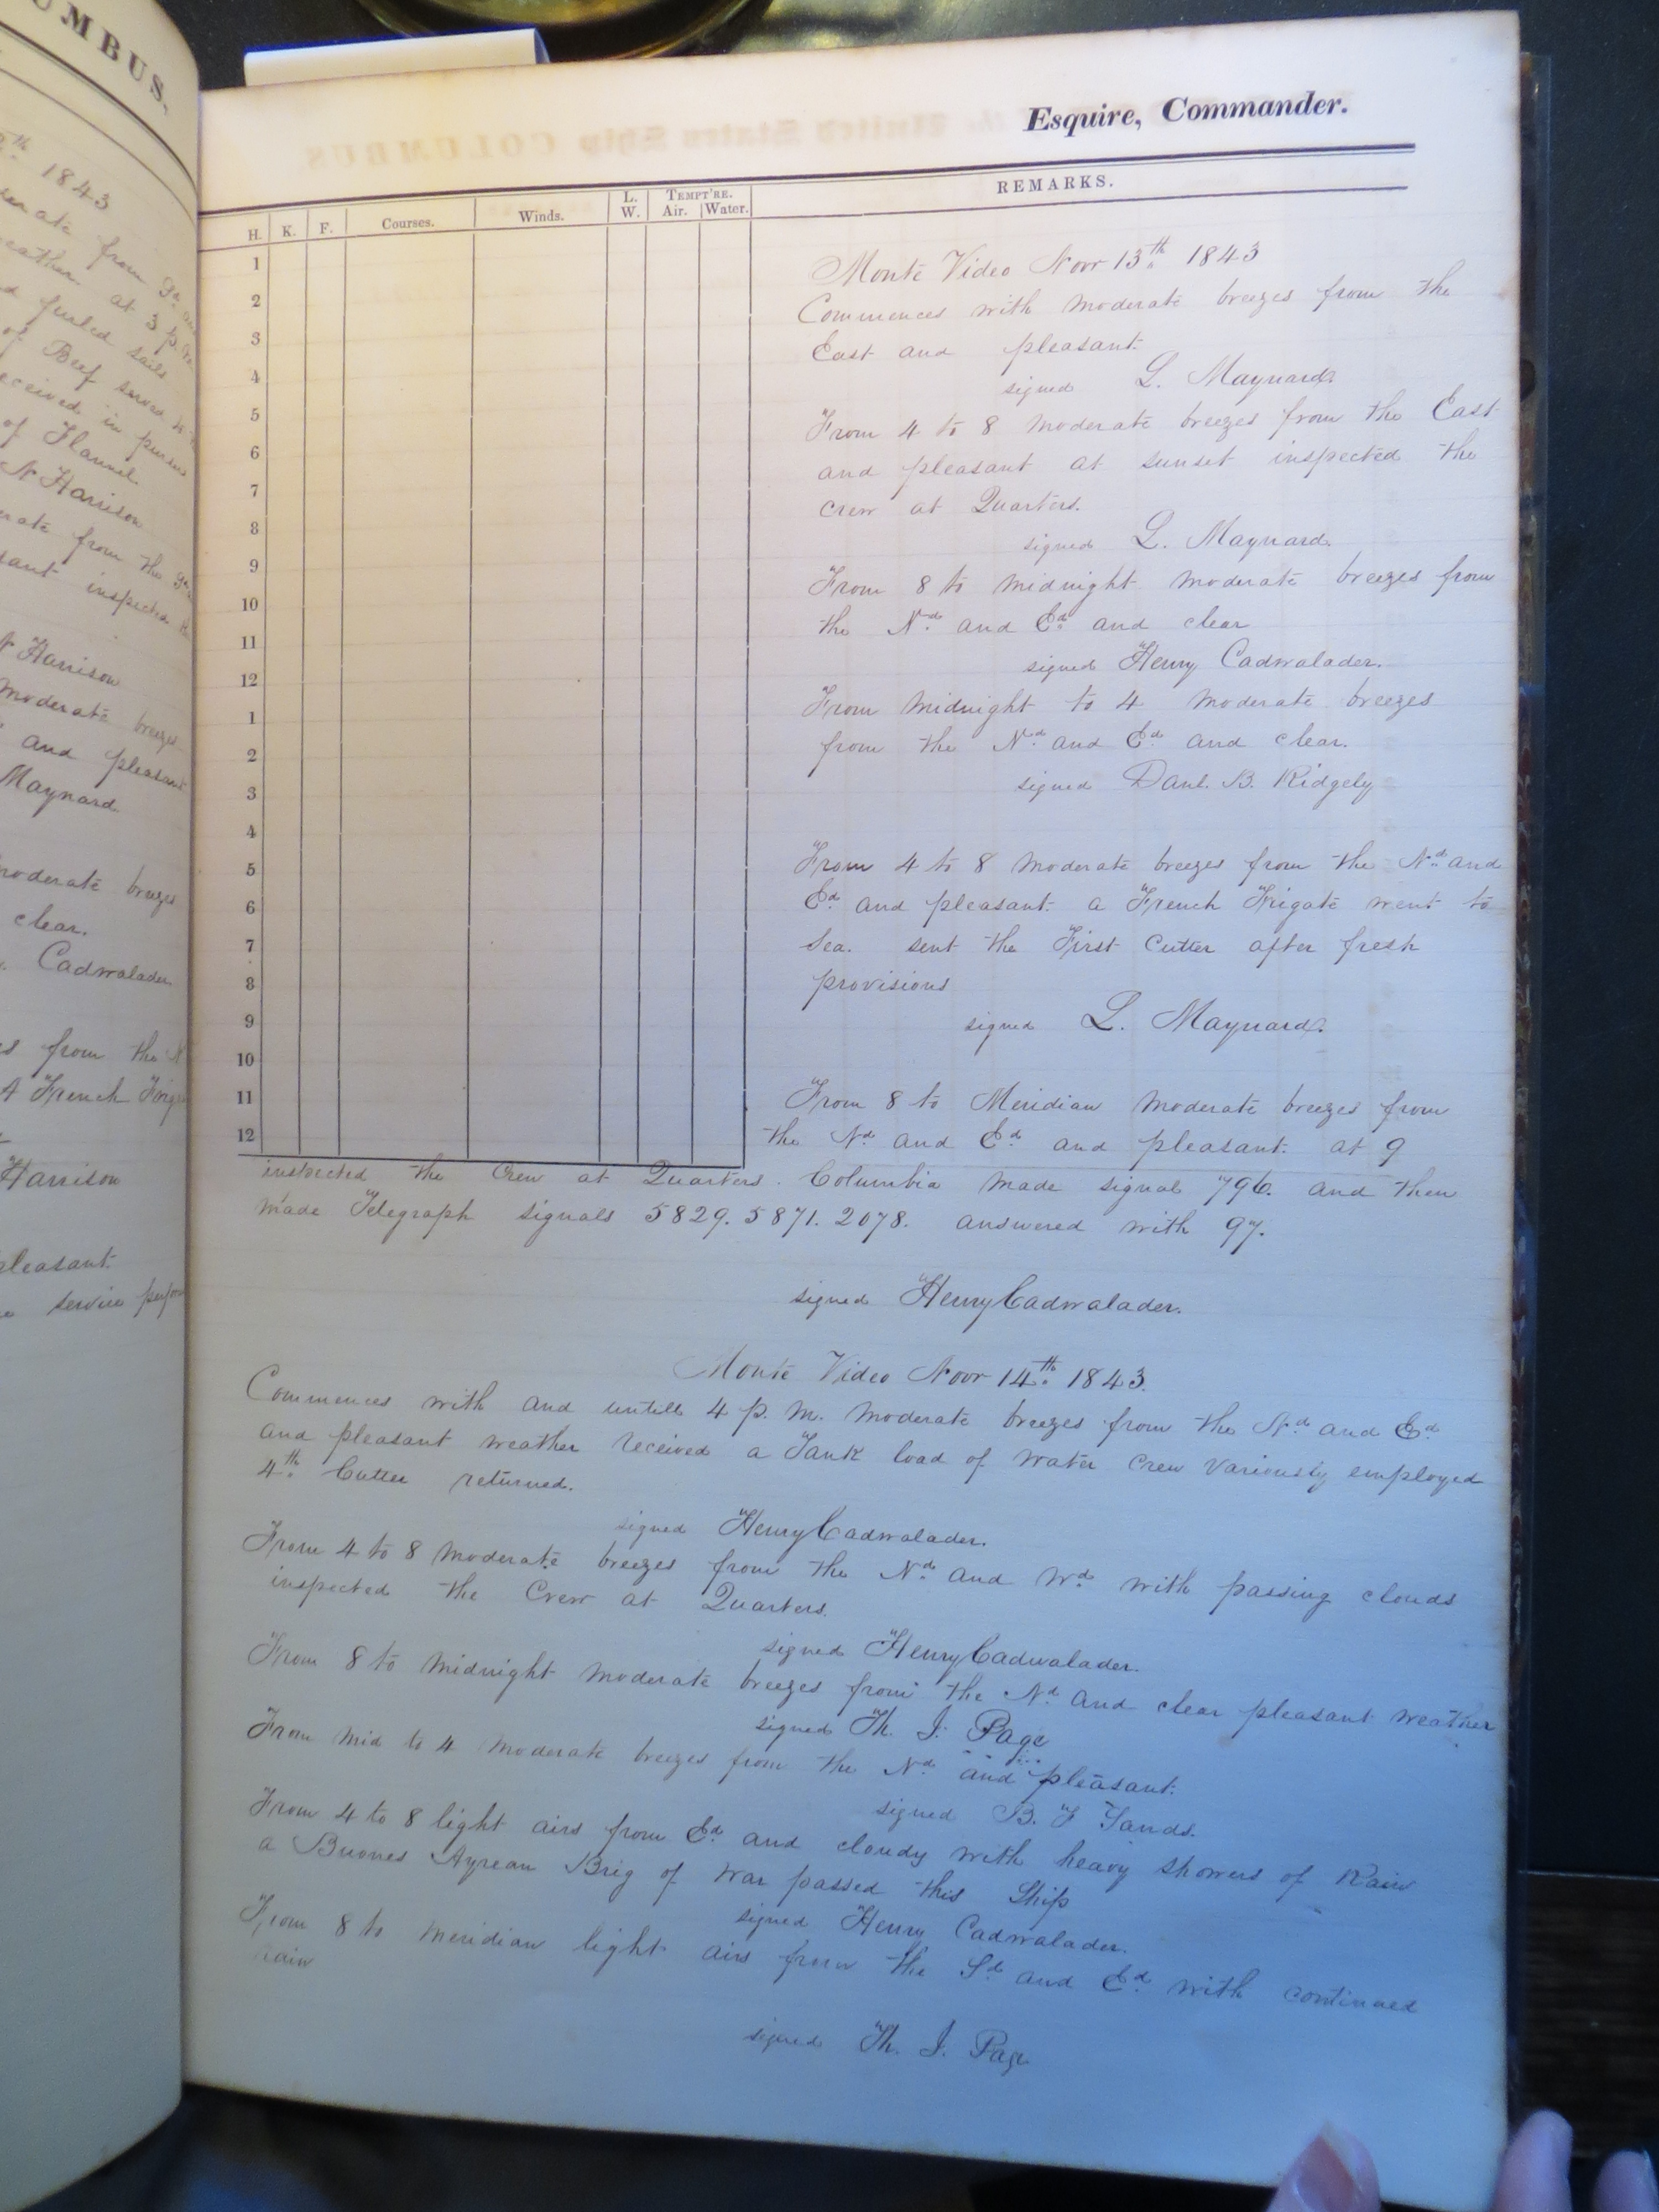 UMBUS.
1843
from
at 3 p.
furled sails
of Beef served
received in
of Flannel
N Harrison
from the
inspected
N Harrison
moderate breezes
and pleasant
Maynard.
moderate breezes
clear.
Cadwalader
from the N
A French
Harrison
pleasant.
service
Esquire, Commander.
H. K. F. Courses. Winds. L. W. TEMPT'RE. Air. Water. REMARKS.
1
2
3
4
5
6
7
8
9
10
11
12
1
2
3
4
5
6
7
8
9
10
11
12
Monte Video Novr 13th 1843
Commences with moderate breezes from the
East and pleasant.
signed L. Maynard.
From 4 to 8 moderate breezes from the East
and pleasant at sunset inspected the
crew at Quarters.
signed L. Maynard.
From 8 to midnight moderate breezes from
the Nd and Ed and clear
signed Henry Cadwalader.
From midnight to 4 moderate breezes
from the Nd and Ed and clear.
signed Danl. B. Ridgely
From 4 to 8 moderate breezes from the Nd and
Ed and pleasant. a French Frigate went to
Sea. sent the First Cutter after fresh
provisions
signed L. Maynard.
From 8 to Meridian moderate breezes from
the Nd and Ed and pleasant. at 9
inspected the Crew at Quarters. Columbia made signal 796. and then
made Telegraph signals 5829. 5871. 2078. answered with 97.
signed Henry Cadwalader.
Monte Video Novr 14th 1843.
Commences with and untill 4 p. m. moderate breezes from the Nd and Ed
and pleasant weather received a Tank load of water Crew variously employed
4th Cutter returned.
signed Henry Cadwalader.
From 4 to 8 moderate breezes from the Nd and Wd with passing clouds
inspected the Crew at Quarters.
signed Henry Cadwalader.
From 8 to midnight moderate breezes from the Nd and clear pleasant weather
signed Th. J. Page
From mid to 4 moderate breezes from the Nd and pleasant.
signed B. F Sands.
From 4 to 8 light airs from Ed and cloudy with heavy showers of Rain
a Buones Ayrean Brig of war passed this Ship
signed Henry Cadwalader.
From 8 to meridian light airs from the Sd and Ed with continued
rain
signed Th. J. Page